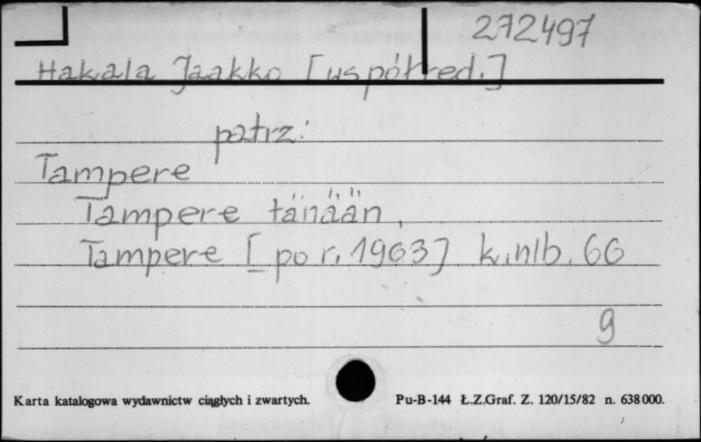 272497
Hakala Jaakko [współred.]
patrz:
Tampere
Tampere tänään.
Tampere [po r. 1963] k.nlb. 66
9
Karta katalogowa wydawnictw ciągłych i zwartych. Pu-B-144 Ł.Z.Graf. Z. 120/15/82 n. 638000.